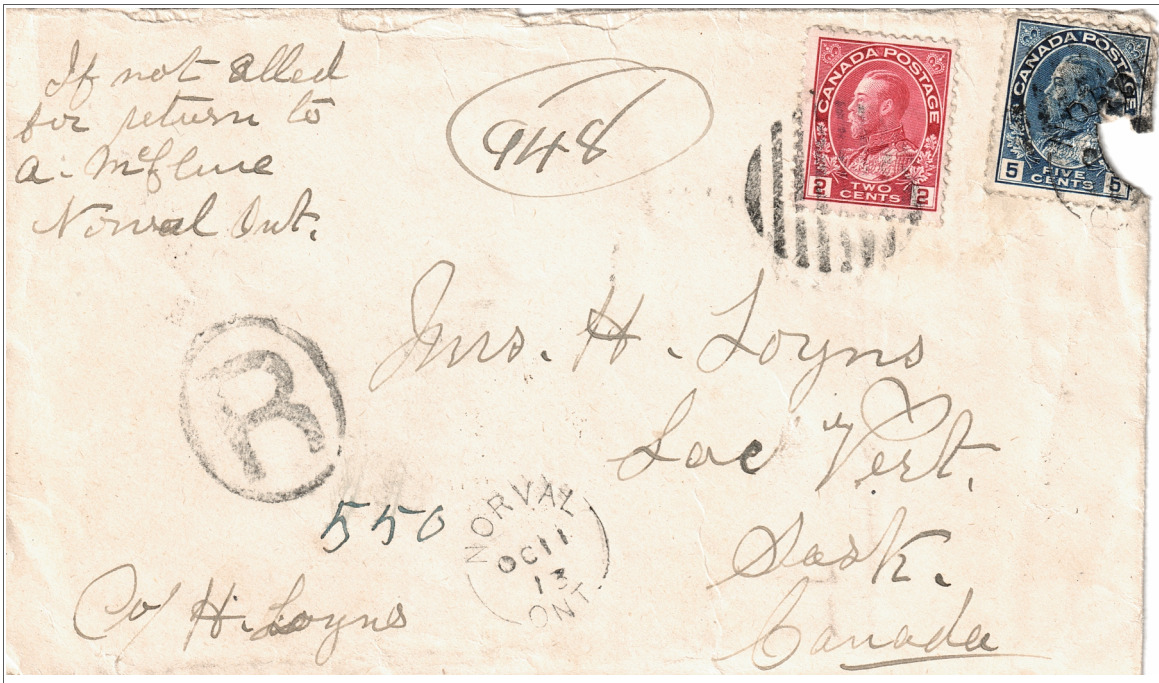 If not alled
for return to
A. McClure
Norval Ont.
948
CANADA POSTAGE
2 TWO CENTS 2
CANADA POSTAGE
5 FIVE CENTS 5
Mrs. H. Loyns
Lac Vert.
Sask.
Canada
R
550
NORVAL
OC 11
13
ONT.
C/o H. Loyns